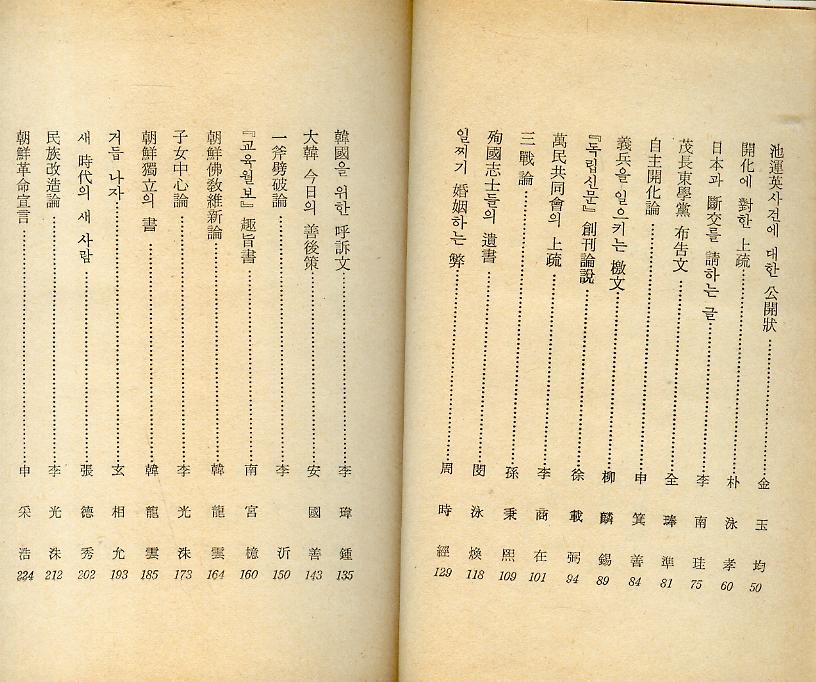 池運英사건에 대한 公開狀……金玉均 50
開化에 對한 上疏……朴泳孝 60
日本과 斷交를 請하는 글……李南珪 75
茂長東學黨 布告文……全琫準 81
自主開化論……申箕善 84
義兵을 일으키는 檄文……柳麟錫 89
『독립신문』 創刊論說……徐載弼 94
萬民共同會의 上疏……李商在 101
三戰論……孫秉熙 109
殉國志士들의 遺書……閔泳煥 118
일찌기 婚姻하는 弊……周時經 129
韓國을 위한 呼訴文……李瑋鍾 135
大韓 今日의 善後策……安國善 143
一斧劈破論……李沂 150
『교육월보』 趣旨書……南宮檍 160
朝鮮佛敎維新論……韓龍雲 164
子女中心論……李光洙 173
朝鮮獨立의 書……韓龍雲 185
거듭 나자……玄相允 193
새 時代의 새 사람……張德秀 202
民族改造論……李光洙 212
朝鮮革命宣言……申采浩 224